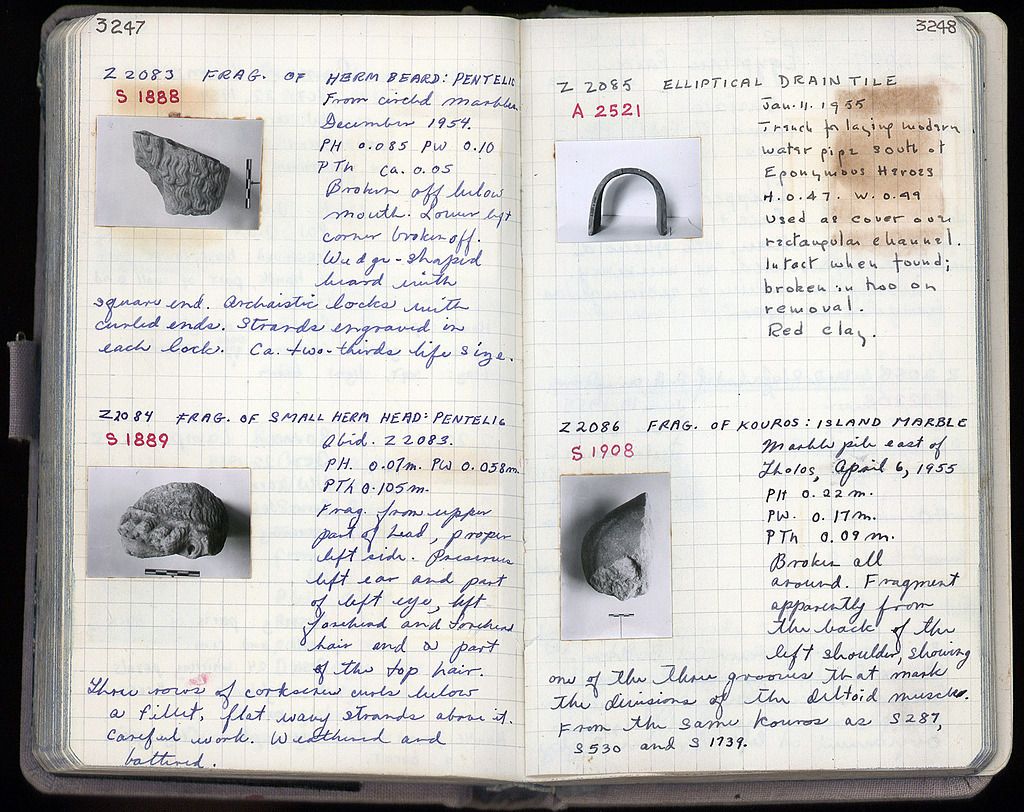 3247
Z 2083 FRAG. OF HERM BEARD: PENTELIC
S 1888
From circled marbles
December 1954.
PH 0.085 PW 0.10
PTh ca. 0.05
Broken off below
mouth. Lower left
corner broken off.
Wedge-shaped
beard with
square end. Archaistic locks with
curled ends. Strands engraved in
each lock. Ca. two-thirds life size.
Z2084 FRAG. OF SMALL HERM HEAD: PENTELIC
S 1889
Ibid. Z 2083.
PH. 0.07m. PW 0.058m.
PTh 0.105m.
Frag. from upper
part of head, proper
left side. Preserves
left ear and part
of left eye, left
forehead and forehead
hair and a part
of the top hair.
Three rows of corkscrew curls below
a fillet, flat wavy strands above it.
Careful work. Weathered and
battered.
3248
Z 2085 ELLIPTICAL DRAIN TILE
A 2521
Jan. 11. 1955
Trench for laying modern
water pipe south of
Eponymous Heroes
H. 0.47. W. 0.49
Used as cover over
rectangular channel.
Intact when found;
broken in two on
removal.
Red clay.
Z 2086 FRAG. OF KOUROS: ISLAND MARBLE
S 1908
Marble pile east of
Tholos, April 6, 1955
PH 0.22 m.
PW. 0.17m.
PTh 0.09 m.
Broken all
around. Fragment
apparently from
the back of the
left shoulder, showing
one of the three grooves that mark
the divisions of the deltoid muscle.
From the same kouros as S 287,
S530 and S 1739.